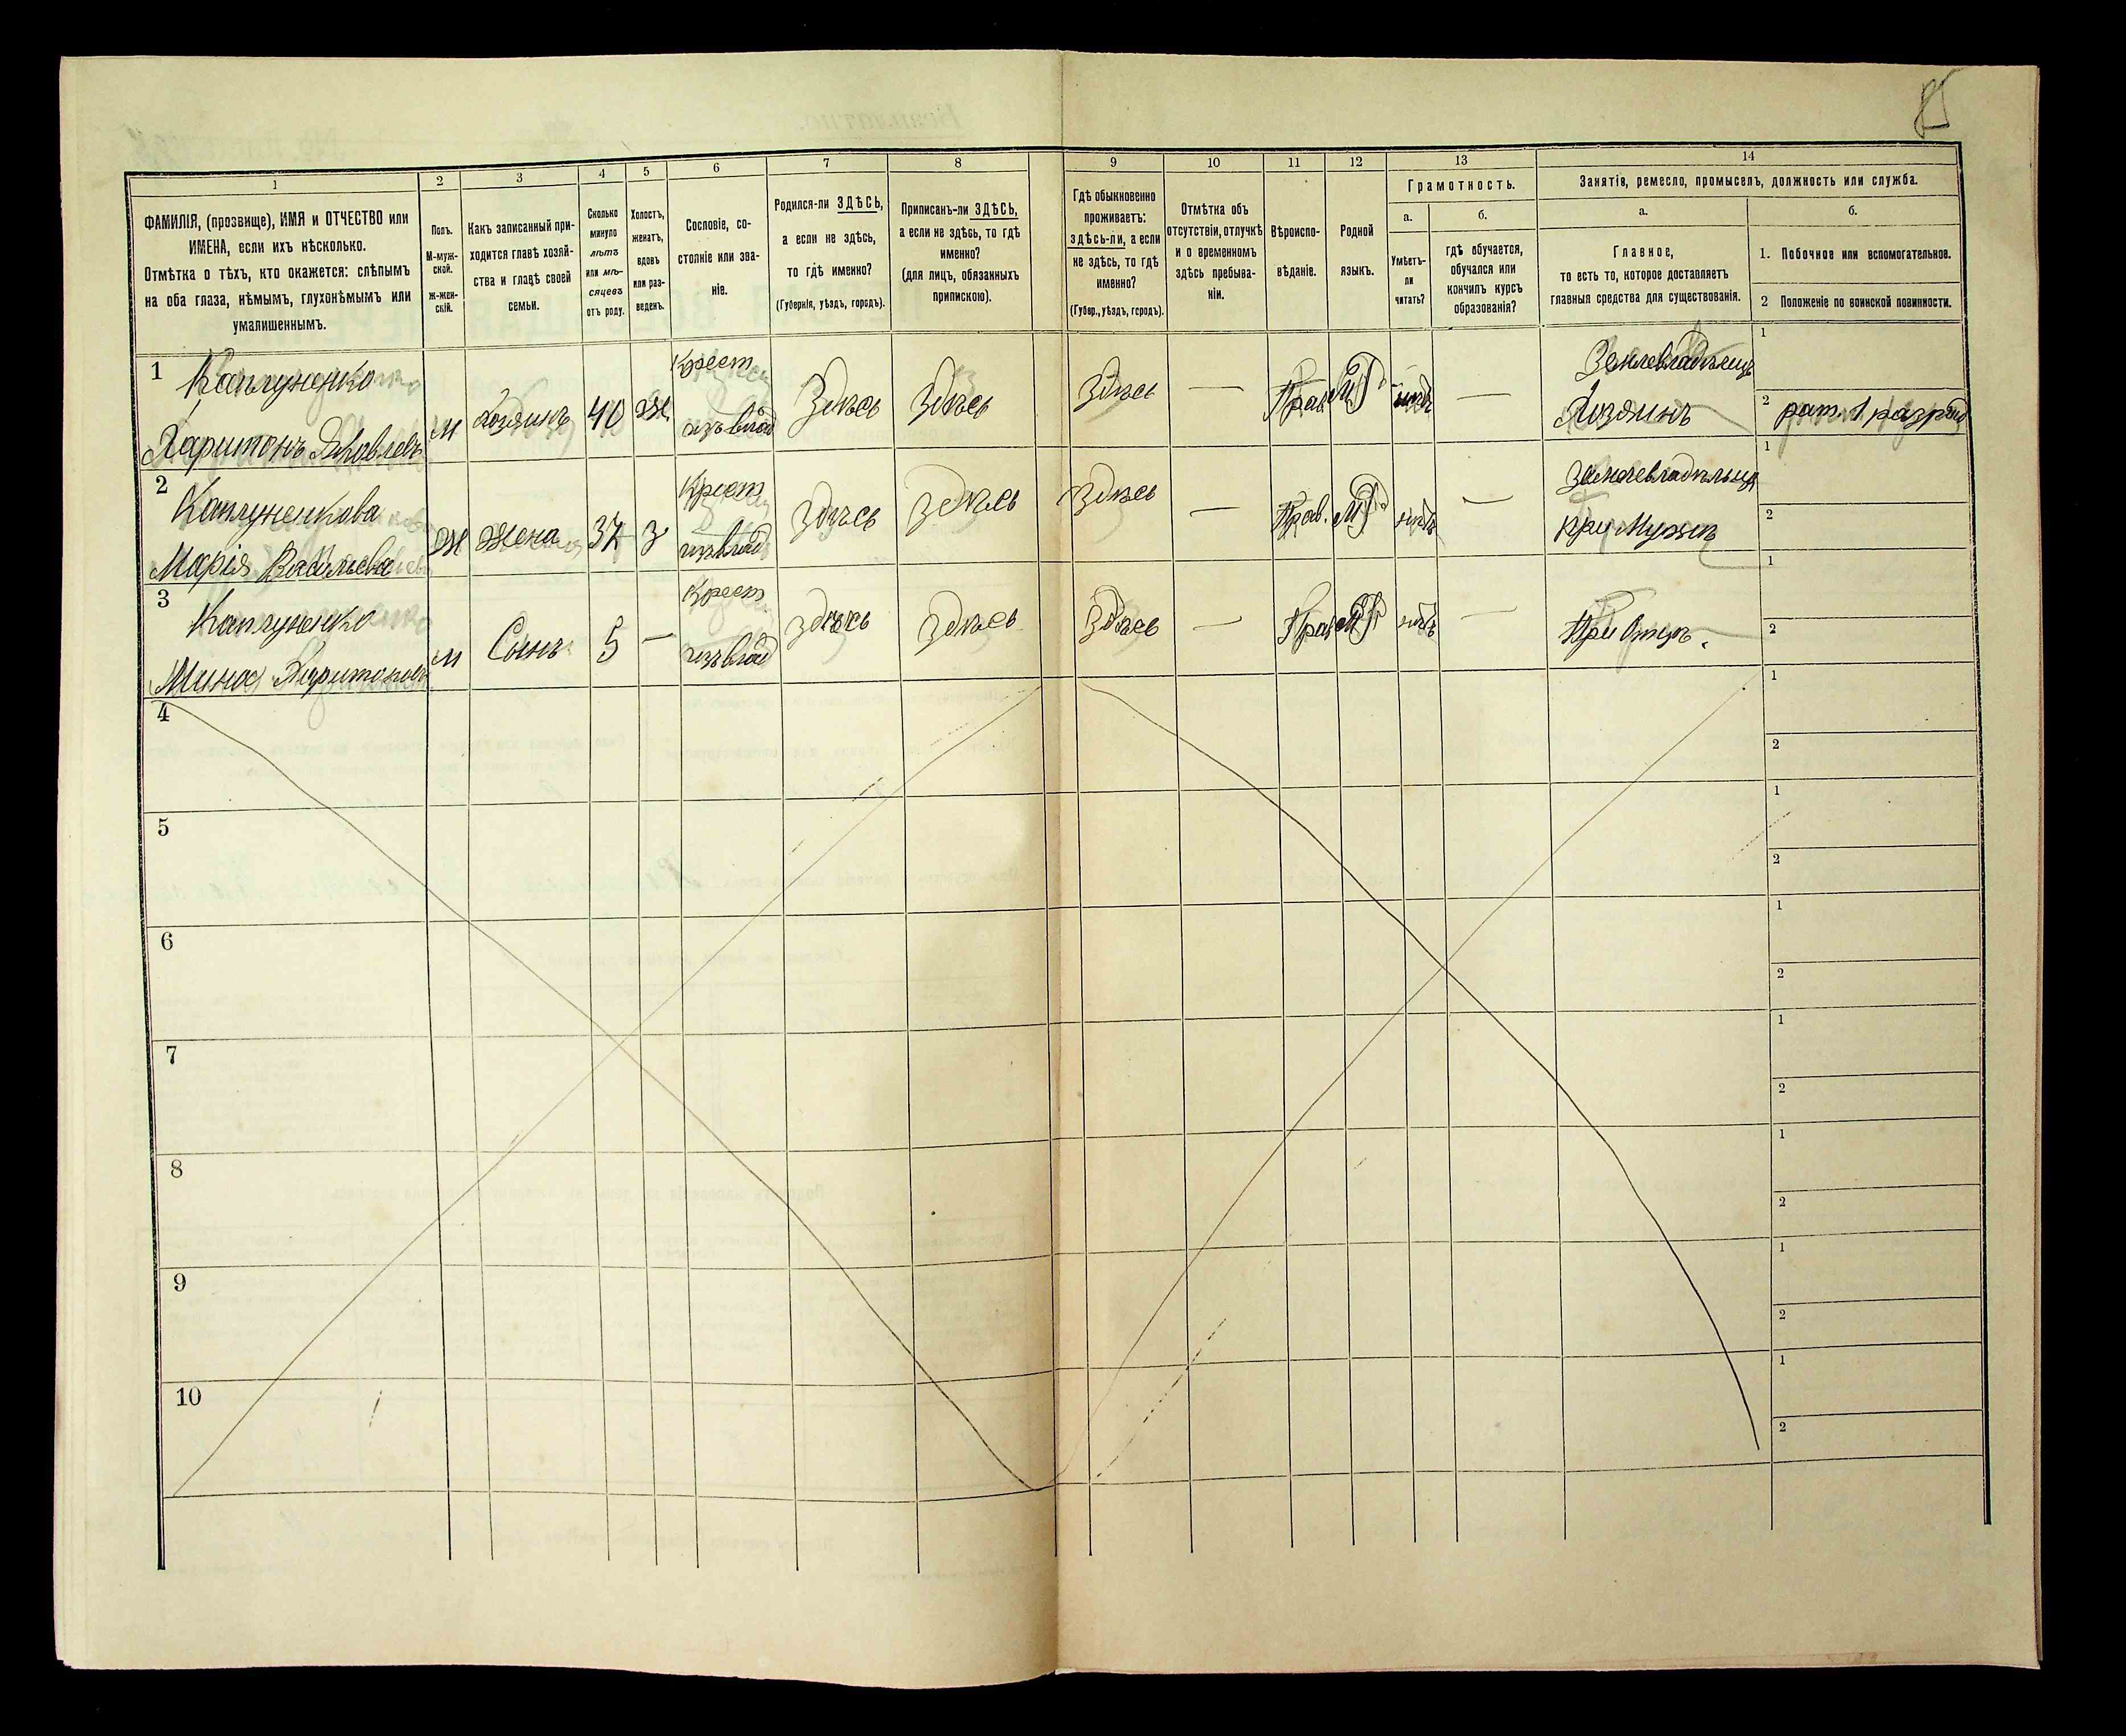 85
1
2
3
4
5
6
7
8
9
10
11
12
13
14
ФАМИЛІЯ, (прозвище), ИМЯ и ОТЧЕСТВО или
ИМЕНА, если ихъ нѣсколько.
Отмѣтка о тѣхъ, кто окажется: слѣпымъ
на оба глаза, нѣмымъ, глухонѣмымъ или
умалишеннымъ.
Полъ.
М-муж-
ской.
Ж-жен-
скій.
Какъ записанный при-
ходится главѣ хозяй-
ства и главѣ своей
семьи.
Сколько
минуло
лѣтъ
или мѣ-
сяцевъ
отъ роду.
Холостъ,
женатъ,
вдовъ
или раз-
веденъ.
Сословіе, со-
стояніе или зва-
ніе.
Родился-ли ЗДѢСЬ,
а если не здѣсь,
то гдѣ именно?
(Губернія, уѣздъ, городъ).
Приписанъ-ли ЗДѢСЬ,
а если не здѣсь, то гдѣ
именно?
(для лицъ, обязанныхъ
припискою).
Гдѣ обыкновенно
проживаетъ:
здѣсь-ли, а если
не здѣсь, то гдѣ
именно?
(Губер., уѣздъ, городъ).
Отмѣтка объ
отсутствіи, отлучкѣ
и о временномъ
здѣсь пребыва-
ніи.
Вѣроиспо-
вѣданіе.
Родной
языкъ.
Грамотность.
а.
Умѣетъ-
ли
читать?
б.
гдѣ обучается,
обучался или
кончилъ курсъ
образованія?
Занятія, ремесло, промыселъ, должность или служба.
а.
Главное,
то есть то, которое доставляетъ
главныя средства для существованія.
б.
1. Побочное или вспомогательное.
2 Положеніе по воинской повинности.
1
Каплуненко
Харитонъ Яковлевъ
М
хозяинъ
40
Ж
Крест
изъ влад
Здѣсь
Здѣсь
Здѣсь
—
Прав
М
нѣтъ
—
Землевладѣлецъ
Хозяинъ
1
2
рат. 1 разряд
2
Каплуненкова
Марія Васильева
Ж
Жена
37
З
Крест
изъ влад
Здѣсь
Здѣсь
Здѣсь
—
Прав.
М
нѣтъ
—
Землевладѣльца
при Мужѣ
1
2
3
Каплуненко
Мина Харитоновъ
М
Сынъ
5
—
Крест
изъ влад
Здѣсь
Здѣсь
Здѣсь
—
Прав
М
нѣтъ
—
При Отцѣ.
1
2
4
1
2
5
1
2
6
1
2
7
1
2
8
1
2
9
1
2
10
1
2